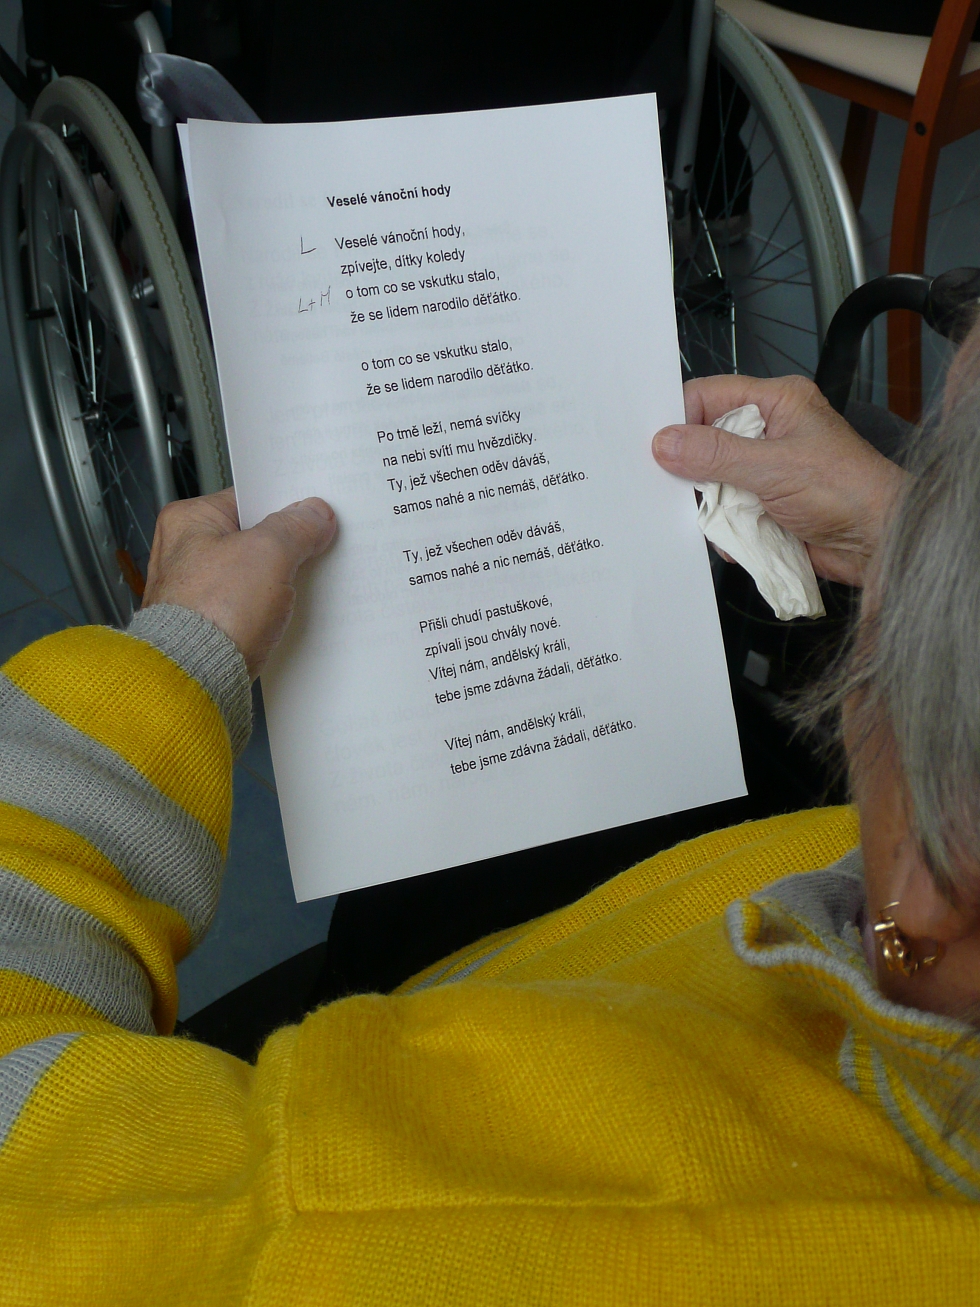 Veselé vánoční hody
L Veselé vánoční hody,
zpívejte, dítky koledy
L+M o tom co se vskutku stalo,
že se lidem narodilo děťátko.
o tom co se vskutku stalo,
že se lidem narodilo děťátko.
Po tmě leží, nemá svíčky
na nebi svítí mu hvězdičky.
Ty, jež všechen oděv dáváš,
samos nahé a nic nemáš, děťátko.
Ty, jež všechen oděv dáváš,
samos nahé a nic nemáš, děťátko.
Přišli chudí pastuškové,
zpívali jsou chvály nové.
Vítej nám, andělský králi,
tebe jsme zdávna žádali, děťátko.
Vítej nám, andělský králi,
tebe jsme zdávna žádali, děťátko.